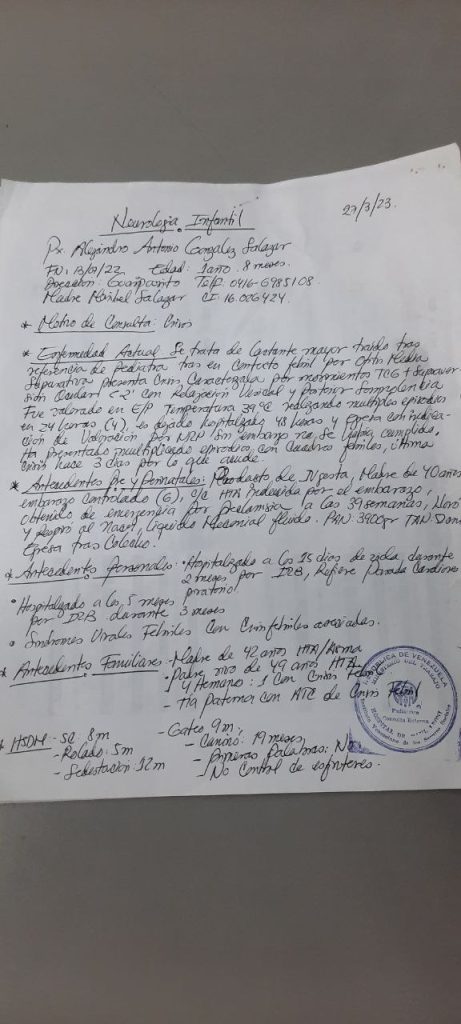 27/3/23.
Neurología Infantil
Px. Alejandro Antonio González Salazar
FN: 13/07/22 Edad: 1 año 8 meses.
Telf. 0416-6985108
Madre Maribel Salazar CI 16.006424.
* Motivo de Consulta: Crisis
* Enfermedad Actual Se trata de lactante mayor traido tras
referencia de pediatra tras en contexto febril por Otitis Media
Supurativa presenta Crisis Caracterizada por movimientos TCG +
sión Ocular <2' con Relajación y postior Somnolencia
Fue valorado en E/P Temperatura 39°C realizando multiples episodios
en 24 horas (4), es dejado hospitalizado 48 horas y Egresa con indica-
ción de Valoración por NRP Sin embargo no se cumplida.
Ha presentado multiples episodios, con Cuadros febriles, última
crisis hace 3 dias por lo que acude.
* Antecedentes Pre y Perinatales: Producto de IV gesta, Madre de 40 años
embarazo Controlado (6), c/c HTA inducida por el embarazo,
obtenido de emergencia por Preclamsia, a las 39 semanas, lloró
y Respiró al Nacer, liquido Meconial fluido. PAN: 3900gr TAN:
Egresa tras
* Antecedentes personales: • Hospitalizado a los 15 dias de vida, durante
2 meses por IRB, Refiere Parada Cardiorres
piratoria.
• Hospitalizado a los 5 meses
por IRB durante 3 meses
• Sindromes Virales Febriles Con Crisis febriles asociadas.
* Antecedentes Familiares - Madre de 42 años HTA/Asma
- Padre de 49 años HTA
- 4 Hermano: 1 Con Crisis Febril
- Tia Paterna con ATC de Crisis Febril
REPUBLICA DE VENEZUELA
Pediatría
Consulta Externa
* HSDM: - SC 8m - Gateo 9m,
- Rolado: 5m - Camino: 19 meses,
- Sedestación: 12m - Primeras Palabras: No
No Control de esfínteres.